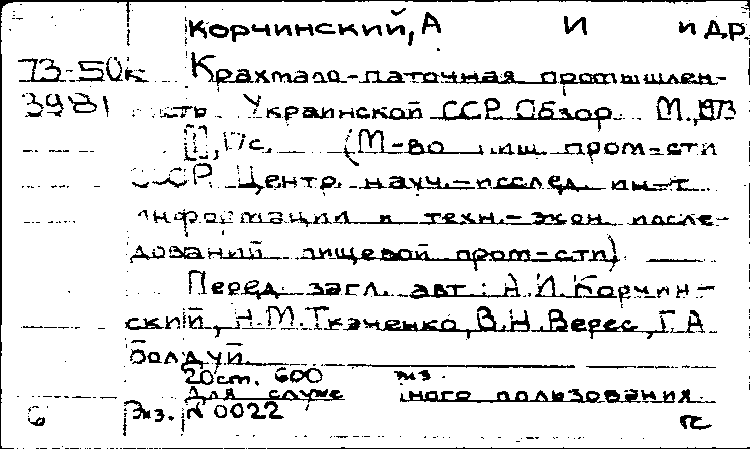 Корчинский, А И и др.
73-50к Крахмало-паточная промышлен-
3981 ность Украинской ССР. Обзор. М., 1973
[1], 17с. (М-во пищ. пром-сти
СССР. Центр. науч.-исслед. ин-т
информации и техн.-экон. иссле-
дований пищевой пром-сти)
Перед загл. авт.: А.И.Корчин-
ский, Н.М.Ткаченко, В.Н.Верес, Г.А
Болдуй.
20см. 600 экз.
Для служебного пользования
6 Экз. № 0022